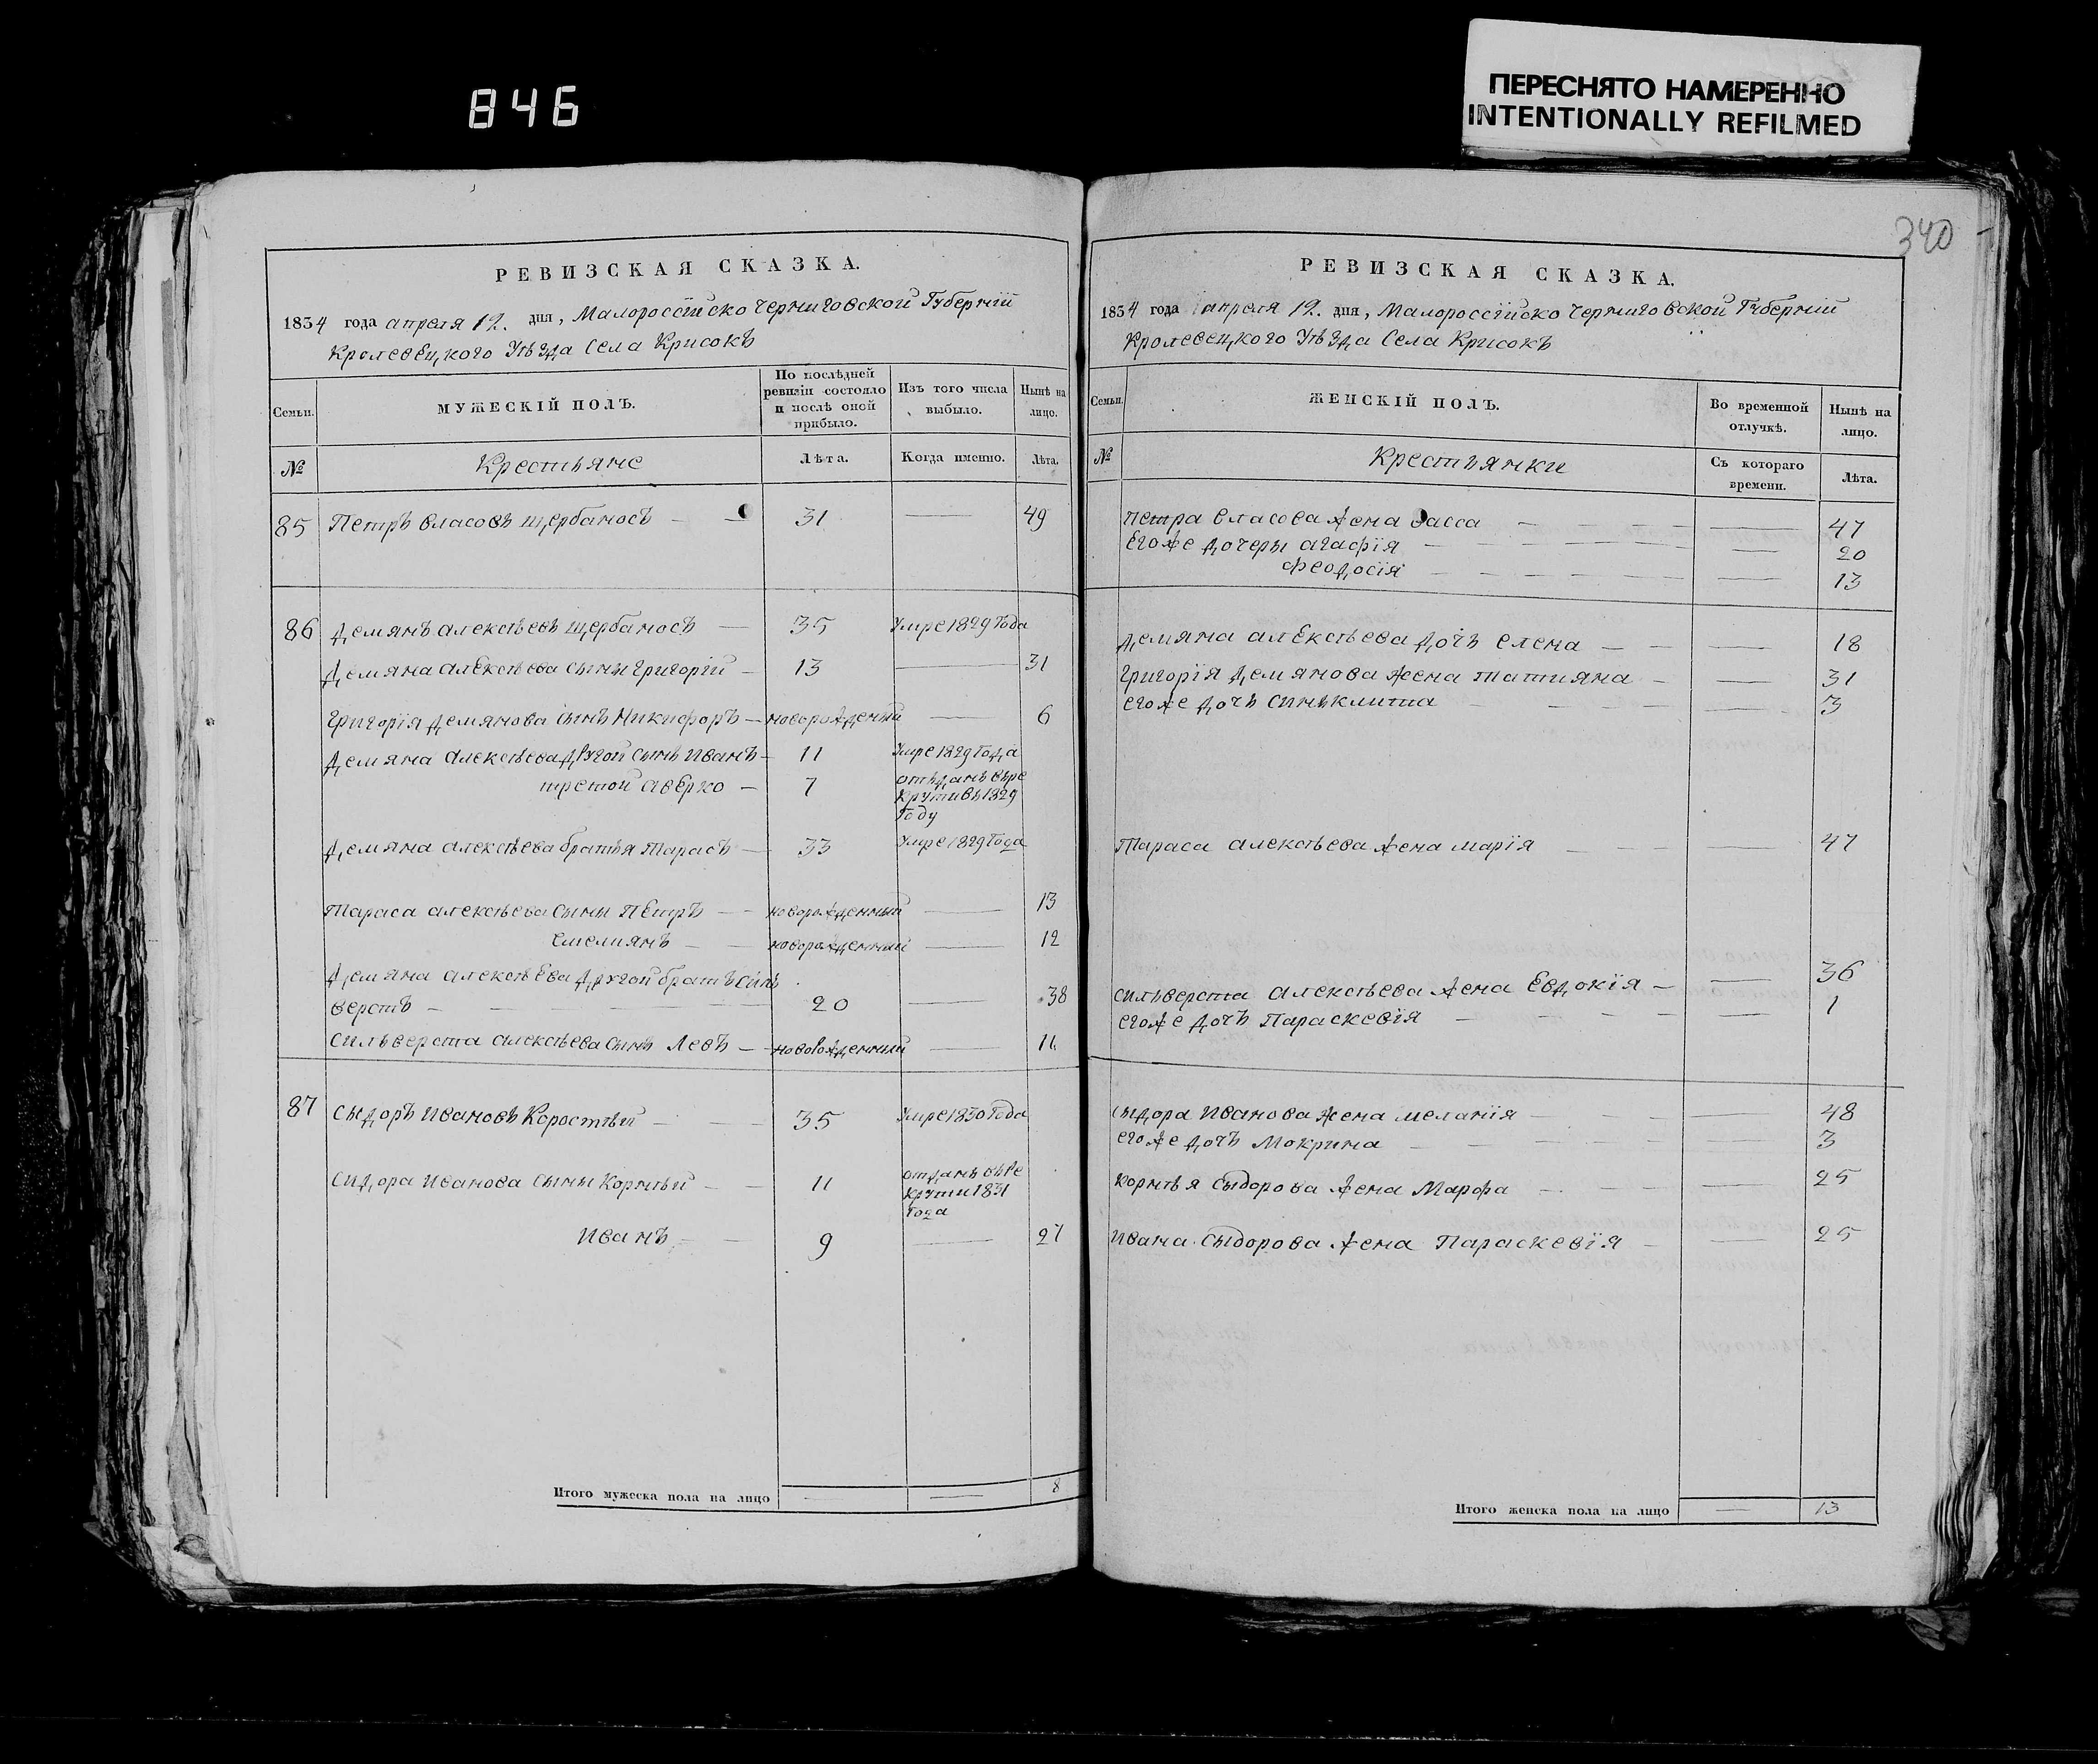 846
ПЕРЕСНЯТО НАМЕРЕННО
INTENTIONALLY REFILMED
340
РЕВИЗСКАЯ СКАЗКА.
1834 года апреля 12. дня, Малороссійско Черниговской Губерніи
Кролевецкого Уѣзда Села Крисокъ
Семьи.
МУЖЕСКІЙ ПОЛЪ.
По послѣдней ревизіи состояло и послѣ оной прибыло.
Изъ того числа выбыло.
Нынѣ на лицо.
№
Крестьяне
Лѣта.
Когда именно.
Лѣта.
85 Петръ Власовъ Щербаносъ — — 31 — 49
86 Демянъ Алексѣевъ Щербаносъ — 35 Умре 1829 Года
Демяна Алексѣева сыны Григорій — 13 — 31
Григорія Демянова сынъ Никифоръ — новорожденный — 6
Демяна Алексѣева другой сынъ Иванъ — 11 Умре 1829 Года
третой Аверко — 7 отъданъ въ ре
крути въ 1829
Году
Демяна Алексѣева братья Тарасъ — 33 Умре 1829 Года
Тараса Алексѣева сыны Петръ — — новорожденный — 13
Емелиянъ — — новорожденный — 12
Демяна Алексѣева другой братъ Силь
верстъ — — — — 20 — 38
Сильверста Алексѣева сынъ Левъ — — новорожденный — 11
87 Сыдоръ Ивановъ Коростѣй — — 35 Умре 1830 Года
Сидора Иванова сыны Корнѣй — — 11 отданъ въ ре
крути 1831
Года
Иванъ — — 9 — 27
Итого мужеска пола на лицо — — 8
РЕВИЗСКАЯ СКАЗКА.
1834 года апреля 12. дня, Малороссійско Черниговской Губерніи
Кролевецкого Уѣзда Села Крисокъ
Семьи.
ЖЕНСКІЙ ПОЛЪ.
Во временной отлучкѣ.
Нынѣ на лицо.
№
Крестьянки
Съ котораго времени.
Лѣта.
Петра Власова жена Васса — — — 47
Егоже дочеры Агафія — — — 20
Феодосія — — — 13
Демяна Алексѣева дочь Елена — — — 18
Григорія Демянова жена Татияна — — 31
Егоже дочь Синьклита — — — 3
Тараса Алексѣева жена Марія — — — 47
Сильверста Алексѣева жена Евдокія — — 36
Егоже дочь Параскевія — — — 1
Сыдора Иванова жена Меланія — — — 48
Егоже дочь Мокрина — — — 3
Корнѣя Сыдорова жена Марфа — — — 25
Ивана Сыдорова жена Параскевія — — 25
Итого женска пола на лицо — 13